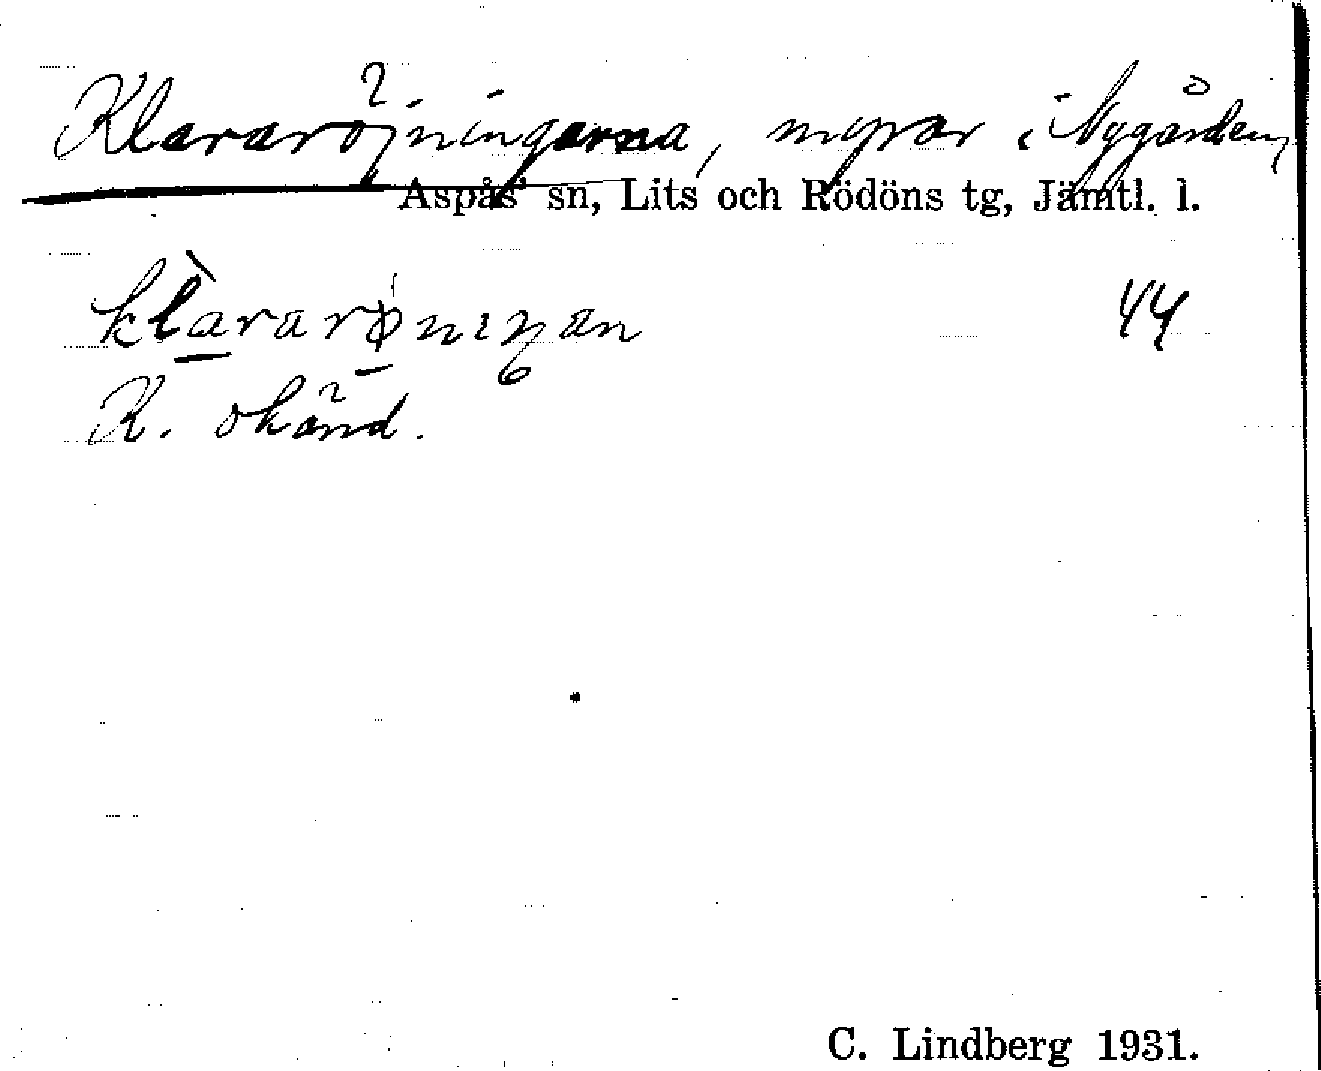 Klararöjningarna, myrar i Nygården,
Aspås' sn, Lits och Rödöns tg, Jämtl. l.
klàrarøniŋan 44
K. okänd.
C. Lindberg 1931.